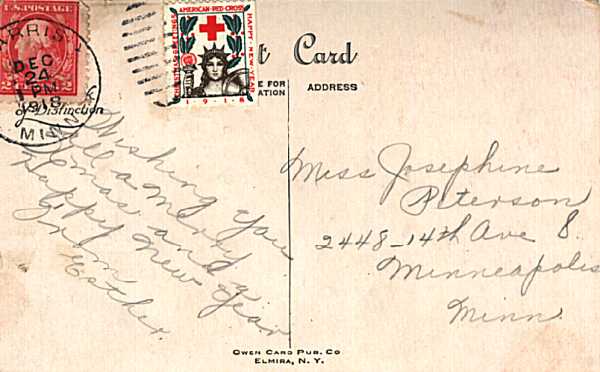 U.S. POSTAGE
DEC
24
1 PM
1918
MINN
of Distinction
AMERICAN RED CROSS
CHRISTMAS GREETINGS
HAPPY NEW YEAR
1918
Card
FOR
ADDRESS
Wishing you
all a merry
Xmas and a
happy New Year
From
Esther.
Miss Josephine
Peterson
2448-14th Ave S.
Minneapolis
Minn.
OWEN CARD PUB. CO
ELMIRA, N. Y.